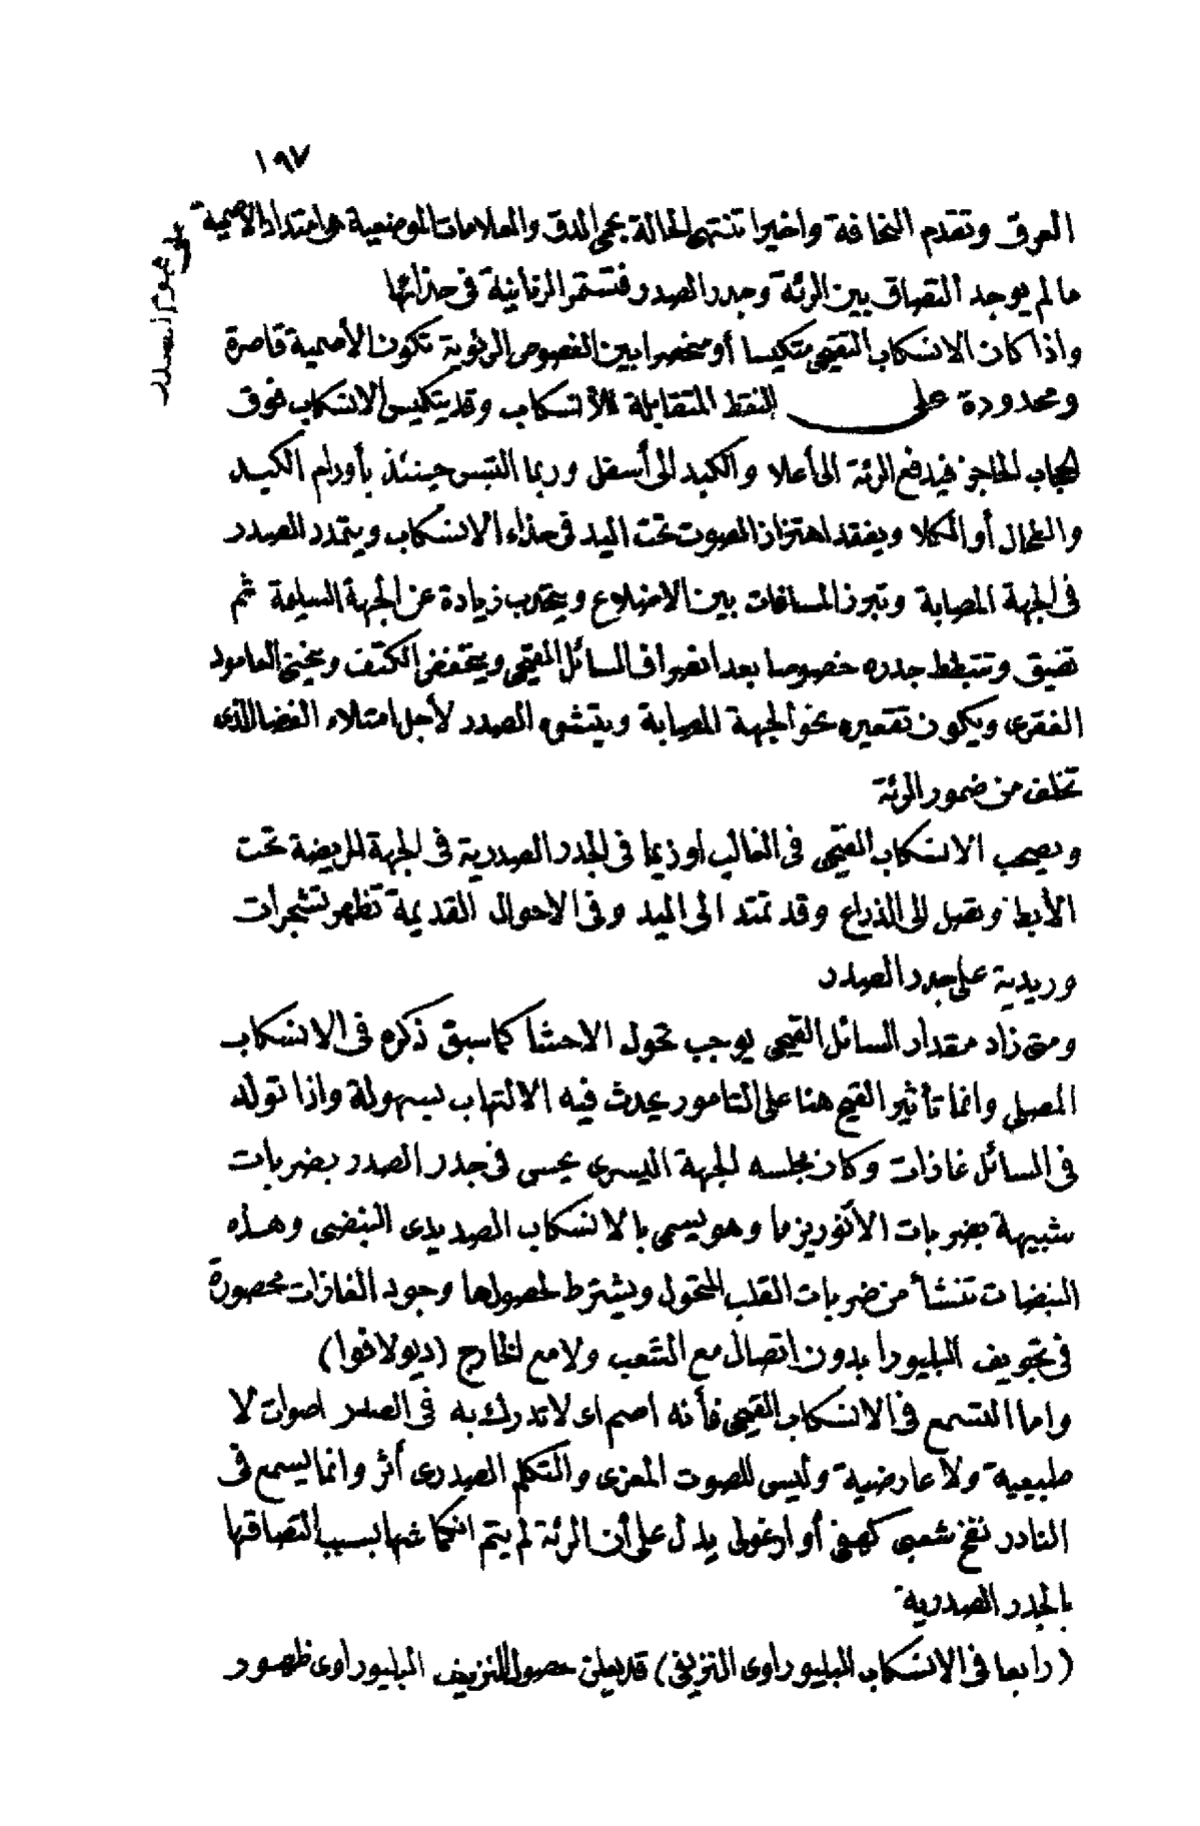 ١٩٧
العرق وتقدم النحافة واخيرا تنتهى الحالة بحمى الدق والعلامات الموضعية هى امتداد الاصمية
على عموم الصدر
ما لم يوجد التصاق بين الرئة وجدر الصدر فتستمر الرنانية فى حذائها
واذا كان الانسكاب القيحى متكيسا أو منحصرا بين الفصوص الرئوية تكون الأصمية قاصرة
ومحدودة على النقط المتقابلة للأنسكاب وقد يتكيس الانسكاب فوق
الحجاب الحاجز فيدفع الرئة الى أعلا والكبد الى أسفل وربما التبس حينئذ بأورام الكبد
والطحال أو الكلا ويفقد اهتزاز الصوت تحت اليد فى حذاء الانسكاب ويتمدد الصدر
فى الجهة المصابة وتبرز المسافات بين الاضلاع ويتحدب زيادة عن الجهة السليمة ثم
تضيق وتتبطط جدره خصوصا بعد انصراف السائل القيحى وينخفض الكتف وينحنى العامود
الفقرى ويكون تقعيره نحو الجهة المصابة ويتشوه الصدر لأجل امتلاء الفضا الذى
تخلف من ضمور الرئة
ويصحب الانسكاب القيحى فى الغالب اوزيما فى الجدر الصدرية فى الجهة المريضة تحت
الأبط وتصل الى الذراع وقد تمتد الى اليد وفى الاحوال القديمة تظهر تشجرات
وريدية على جدر الصدر
ومتى زاد مقدار السائل القيحى يوجب تحول الاحشا كما سبق ذكره فى الانسكاب
المصلى وانما تأثير القيح هنا على التامور يحدث فيه الالتهاب بسهولة واذا تولد
فى السائل غازات وكان مجلسه الجهة اليسرى يحس فى جدر الصدر بضربات
شبيهة بضربات الأنوريزما وهو يسمى بالانسكاب الصديدى النبضى وهذه
النبضات تنشأ من ضربات القلب المتحول ويشترط لحصولها وجود الغازات محصورة
فى تجويف البليورا بدون اتصال مع الشعب ولا مع الخارج (ديولافوا)
واما التسمع فى الانسكاب القيحى فأنه اصم اى لا تدرك به فى الصدر اصوات لا
طبيعية ولا عارضية وليس للصوت المعزى والتكلم الصدرى أثر وانما يسمع فى
النادر نفخ شعبى كهفى أو ارغولى يدل على أن الرئة لم يتم انكماشها بسبب التصاقها
بالجدر الصدرية
(رابعا فى الانسكاب البليوراوى النزيفى) قد يعلن حصول النزيف البليوراوى ظهور